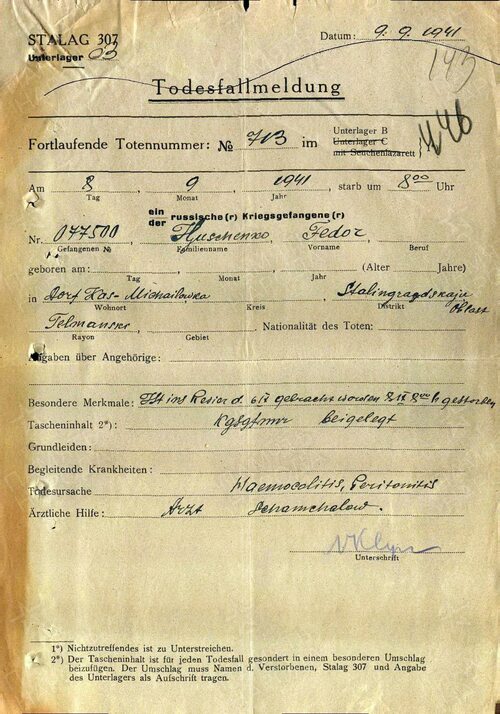 STALAG 307 Datum: 9. 9. 1941
Unterlager 03 143
Todesfallmeldung
Fortlaufende Totennummer: № 713 im Unterlager B
Unterlager C
mit Seuchenlazarett
Am 8 9 1941, starb um 8⁰⁰ Uhr
Tag Monat Jahr
ein
der russische(r) Kriegsgefangene(r)
Nr. 077500, Fedor,
Gefangenen № Familienname Vorname Beruf
geboren am: (Alter Jahre)
Tag Monat Jahr
in Dorf Kos-Michailowka Stalingradskaja
Wohnort Kreis Distrikt Oblast
Telmanski Nationalität des Toten:
Rayon Gebiet
Angaben über Angehörige:
Besondere Merkmale: Ist ins Revier d. 6 IX gebracht worden 8 IX 8⁰⁰ h gestorben
Tascheninhalt 2*): beigelegt
Grundleiden:
Begleitende Krankheiten:
Todesursache Haemocolitis, Peritonitis
Ärztliche Hilfe: Arzt Schamchalow.
Unterschrift
1*) Nichtzutreffendes ist zu Unterstreichen.
2*) Der Tascheninhalt ist für jeden Todesfall gesondert in einem besonderen Umschlag
beizufügen. Der Umschlag muss Namen d. Verstorbenen, Stalag 307 und Angabe
des Unterlagers als Aufschrift tragen.